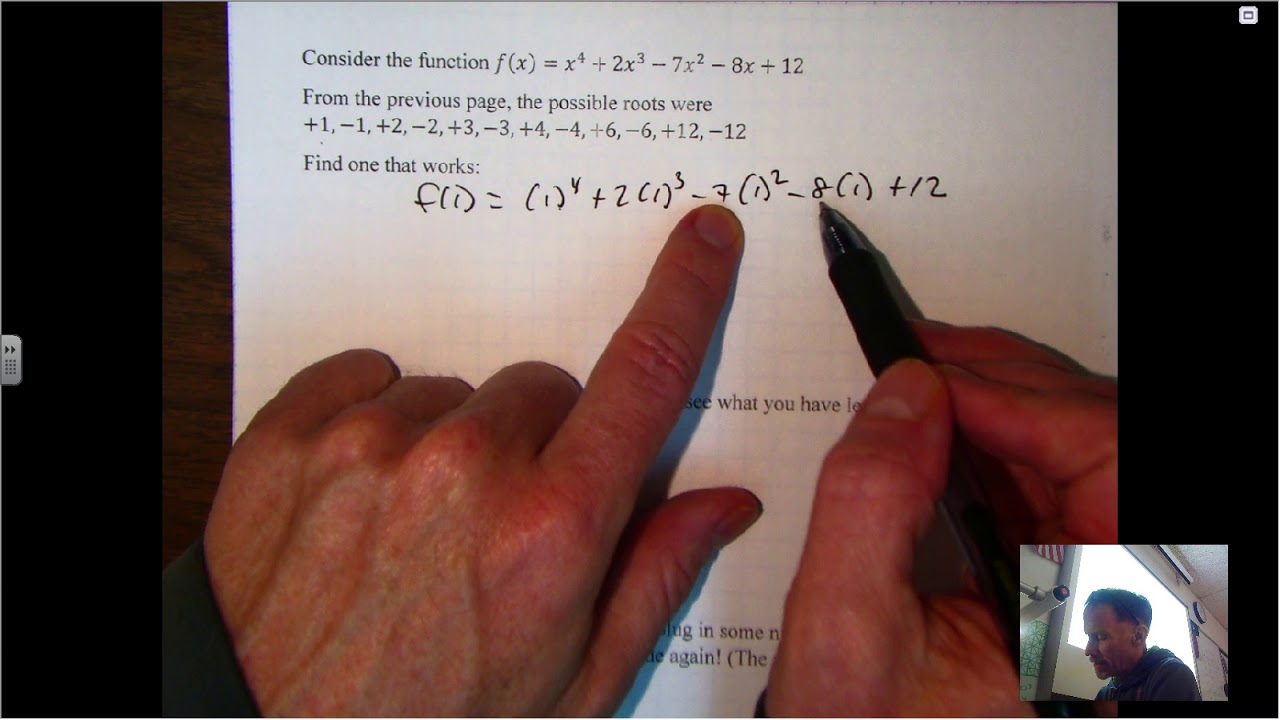 Consider the function f(x) = x⁴ + 2x³ − 7x² − 8x + 12
From the previous page, the possible roots were
+1, −1, +2, −2, +3, −3, +4, −4, +6, −6, +12, −12
Find one that works:
f(1) = (1)⁴ + 2(1)³ − 7(1)² − 8(1) + 12
see what you have
in some
again! (The